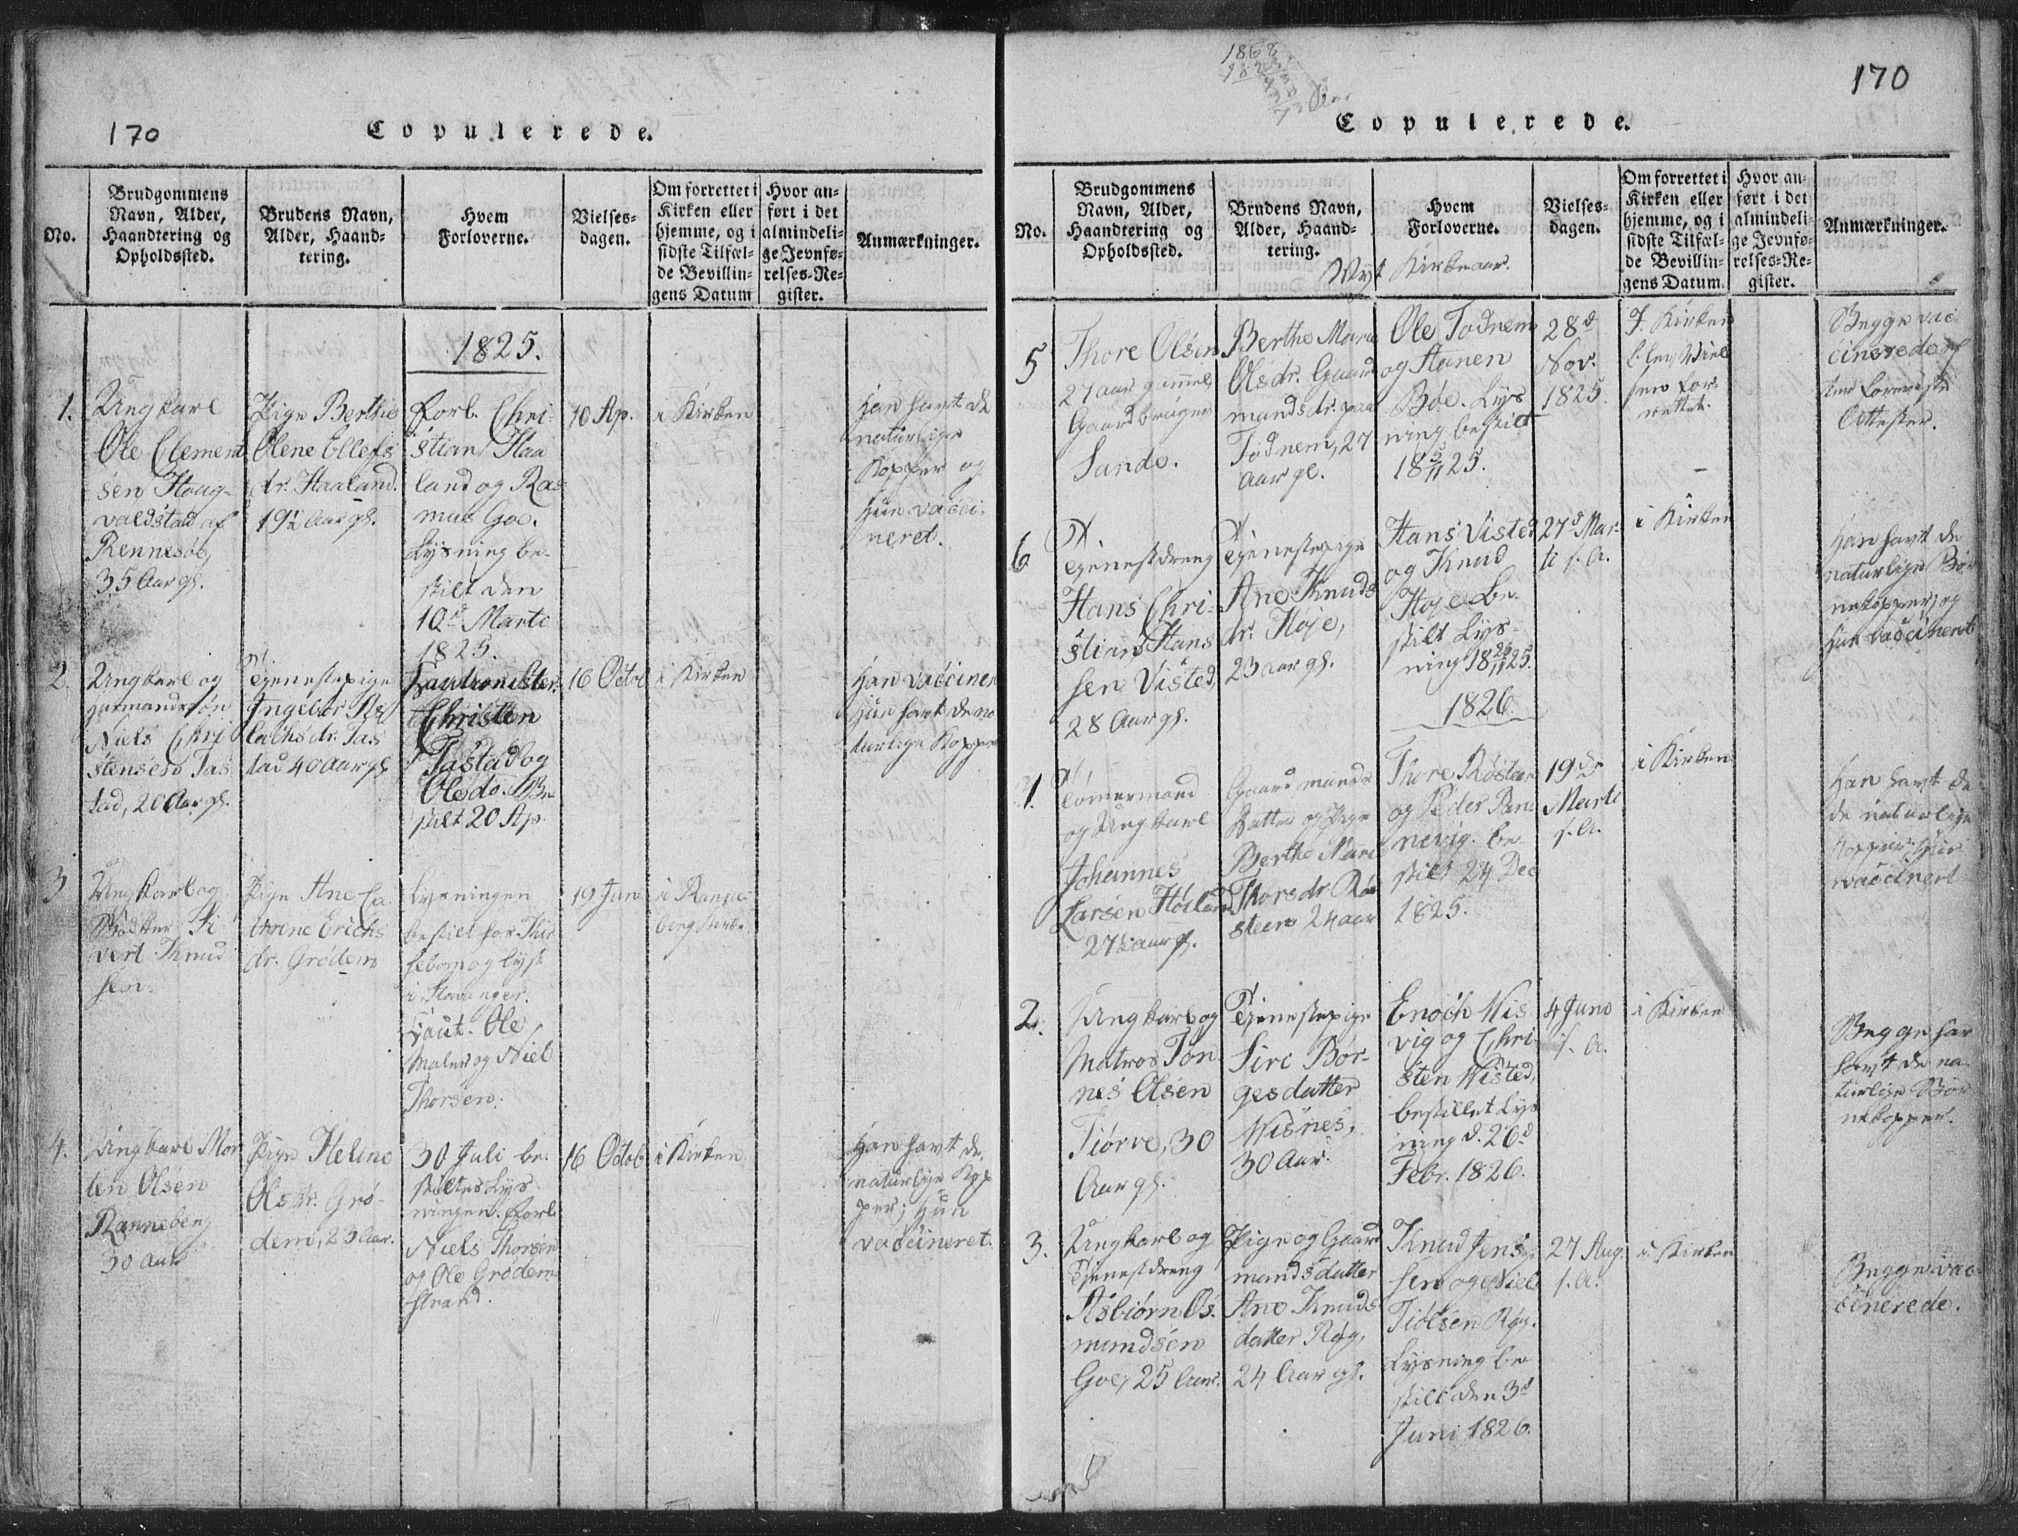 170
Copulerede.
No.
Brudgommens
Navn, Alder,
Haandtering og
Opholdssted.
Brudens Navn,
Alder, Haand-
tering.
Hvem
Forloverne.
Vielses-
dagen.
Om forrettet i
Kirken eller
hjemme, og i
sidste Tilfæl-
de Bevillin-
gens Datum
Hvor an-
ført i det
almindeli-
ge Jevnfø-
relses-Re-
gister.
Anmærkninger.
1825.
1.
Ungkarl
Ole Clement
sen Houg-
valdstad af
Rennesöe,
35 Aar gl.
Pige Berthe
Olene Ellefs
dr. Haaland.
19½ Aar gl.
Forl. Chri-
stian Haa
land og Ras
mus Goe.
Lysning be-
stilt den
10d Marti
1825.
10 Ap.
i Kirken
Han havt de
naturlige
Kopper og
Hun vacci-
neret.
2
Ungkarl og
Niels Chri
stensen Tas
tad, 20 Aar gl.
Tjenestepige
Ingebor
lachsdr. Tas
tad 40 Aar gl.
Cautionister
Christen
Tastad og
Ole do. Be
stilt 20 Ap.
16 Octob
i Kirken
Han vaccineret
Hun havt de na
turlige Kopper
3
Ungkarl og
Bödker Si
vert Knud
sen.
Pige Ane Ca
thrine Erichs
dr. Grödem
Lysningen
bestilt for
og lyst
i Stavanger.
Caut. Ole
Maler og Niel
Thorsen.
19 Juni
i
berg Kirke
4.
Ungkarl Mor
ten Olsen
Ranneberg
30 Aar
Pige Helene
Olsdr. Grö-
dem, 23 Aar.
30 Juli be-
stiltes Lys-
ningen. Forl.
Niels Thorsen
og Ole Grödem
strand.
16 Octob
i Kirken
Han havt de
naturlige Kop
per; Hun
vaccineret.
1868
170
Copulerede.
No.
Brudgommens
Navn, Alder,
Haandtering og
Opholdssted.
Brudens Navn,
Alder, Haand-
tering.
Hvem
Forloverne.
Vielses-
dagen.
Om forrettet i
Kirken eller
hjemme, og i
sidste Tilfæl-
de Bevillin-
gens Datum.
Hvor an-
ført i det
almindeli-
ge Jevnfø-
relses-Re-
gister.
Anmærkninger.
Nyt Kirkeaar.
5
Thore Olsen
27 aar gammel
Gaardbruger
Sande.
Berthe Maria
Olsdr. Gaard
mandsdr. paa
Todnem, 27
aar gl.
Ole Todnem
og Hanen
Böe. Lys
ning bestilt
18 5/11 25.
28d
Nov.
1825.
I Kirken
blev Viel
sen for-
rettet.
Begge vac-
cinerede
Attester.
6
Tjenestdreng
Hans Chri-
stian Hans
sen Visted,
28 Aar gl.
Tjenestepige
Ane Knuds
dr. Höje,
23 aar gl.
Hans Visted
og Knud
Höje. Be-
stilt Lys-
ning 18 26/11 25.
27d Mar-
ti s. A.
i Kirken
Han havt de
naturlige Bör
nekopper, og
Hun vaccineret
1826.
1.
Tömermand
og Ungkarl
Johannes
Larsen Höiland
27 aar gl.
Gaardmands
Datter og Pige
Berthe Mari
Thorsdr. Rö
steen 24 aar
Thore Rösteen
og Peder Pan
nevig. be-
stilt 24 Dec
1825.
19de
Marti
s. A.
i Kirken
Han havt de
de naturlige
Kopper. Hun
vaccineret
2.
Ungkarl og
Matros Tön
nes Olsen
Tiörve, 30
Aar gl.
Tjenestepige
Siri Bör-
gesdatter
Wisnes,
30 Aar.
Enoch Wis
vig og Chri-
sten Wisted,
bestillet Lys
ning d. 26d
Febr. 1826.
4 Juno
s. A.
i Kirken
Begge har
havt de na
turlige Bör
nekopper.
3.
Ungkarl og
Tjenestdreng
Asbiörn Os-
mundsen
Goe, 25 Aar.
Pige og Gaard
mandsdatter
Ane Knuds
datter Rög,
24 Aar gl.
Knud Jens
sen og Niels
Tiölsen Rög.
Lysning be
stilt den 3d
Juni 1826.
27 Aug.
s. A.
i Kirken
Begge vac-
cinerede.